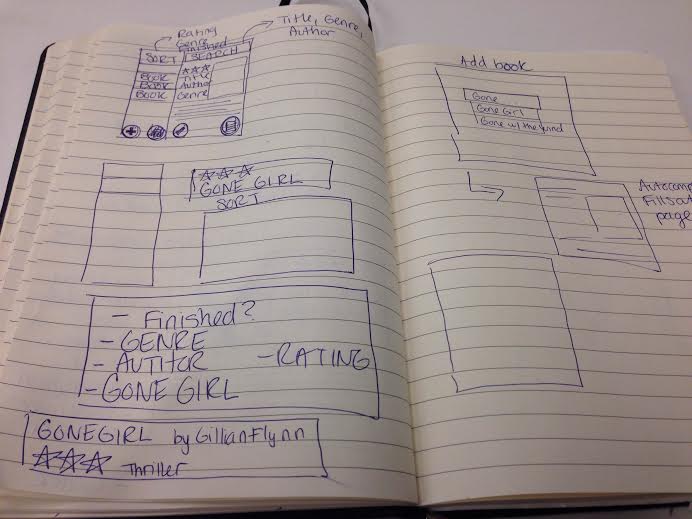 Rating
Genre
Finished
Title, Genre,
Author
SORT SEARCH
Book
Book
Book
Title
Author
Genre
GONE GIRL
SORT
- Finished?
- GENRE
- AUTHOR - RATING
- GONE GIRL
GONE GIRL by Gillian Flynn
Thriller
Add book
Gone
Gone Girl
Gone w/ the Wind
Autocomp
Fills out
page